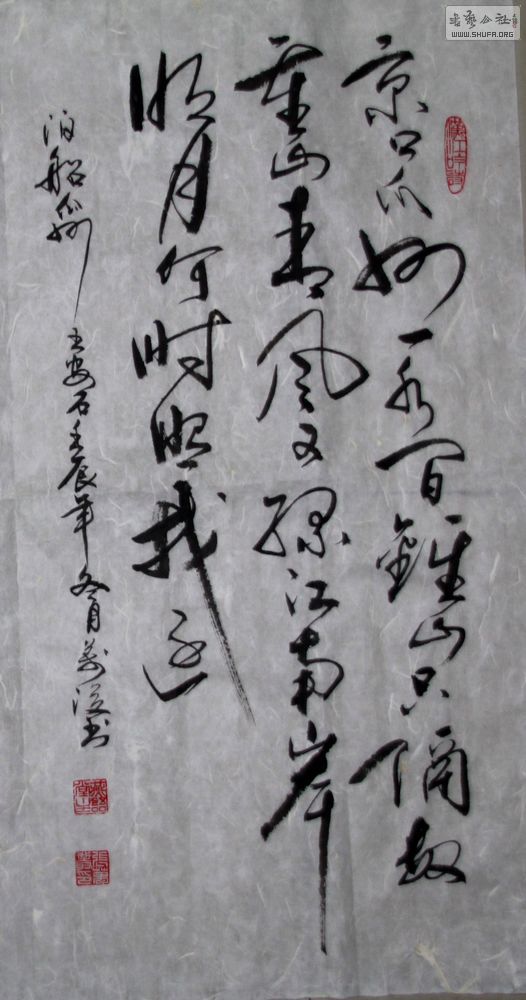 京口瓜洲一水间鍾山只隔数
重山春风又绿江南岸
明月何时照我还
泊船瓜洲 王安石 壬辰年 冬月 书
书艺公社
WWW.SHUFA.ORG